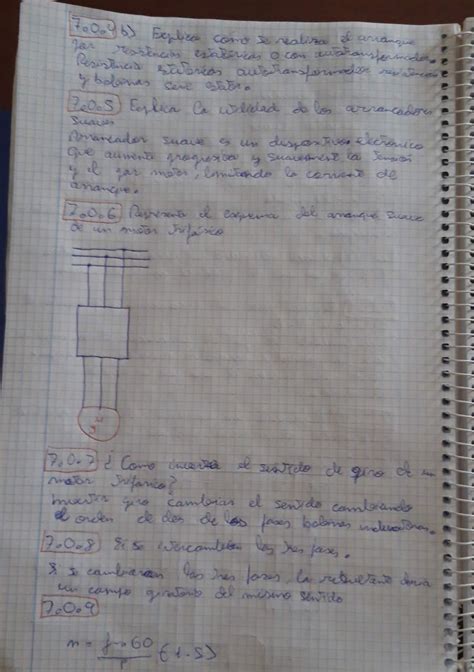 7.0.4 b) Explica como se realiza el arranque
por resistencias estatóricas o con autotransformador.
Resistencia estatoricas autotransformador resistencias
y bobinas serie estator.
7.0.5 Explica la utilidad de los arrancadores
suaves
Arrancador suave es un dispositivo electrónico
que aumenta progresiva y suavemente la tensión
y el par motor, limitando la corriente de
arranque.
7.0.6 Representa el esquema del arranque suave
de un motor trifásico
7.0.7 ¿Como invertir el sentido de giro de un
motor trifasico?
Invertir giro cambiar el sentido cambiando
el orden de dos de las fases bobinas
7.0.8 Si se intercambian las tres fases.
Si se cambiaran las tres fases, la resultante seria
un campo giratorio del mismo sentido
7.0.9
n = f · 60 / p (1-S)